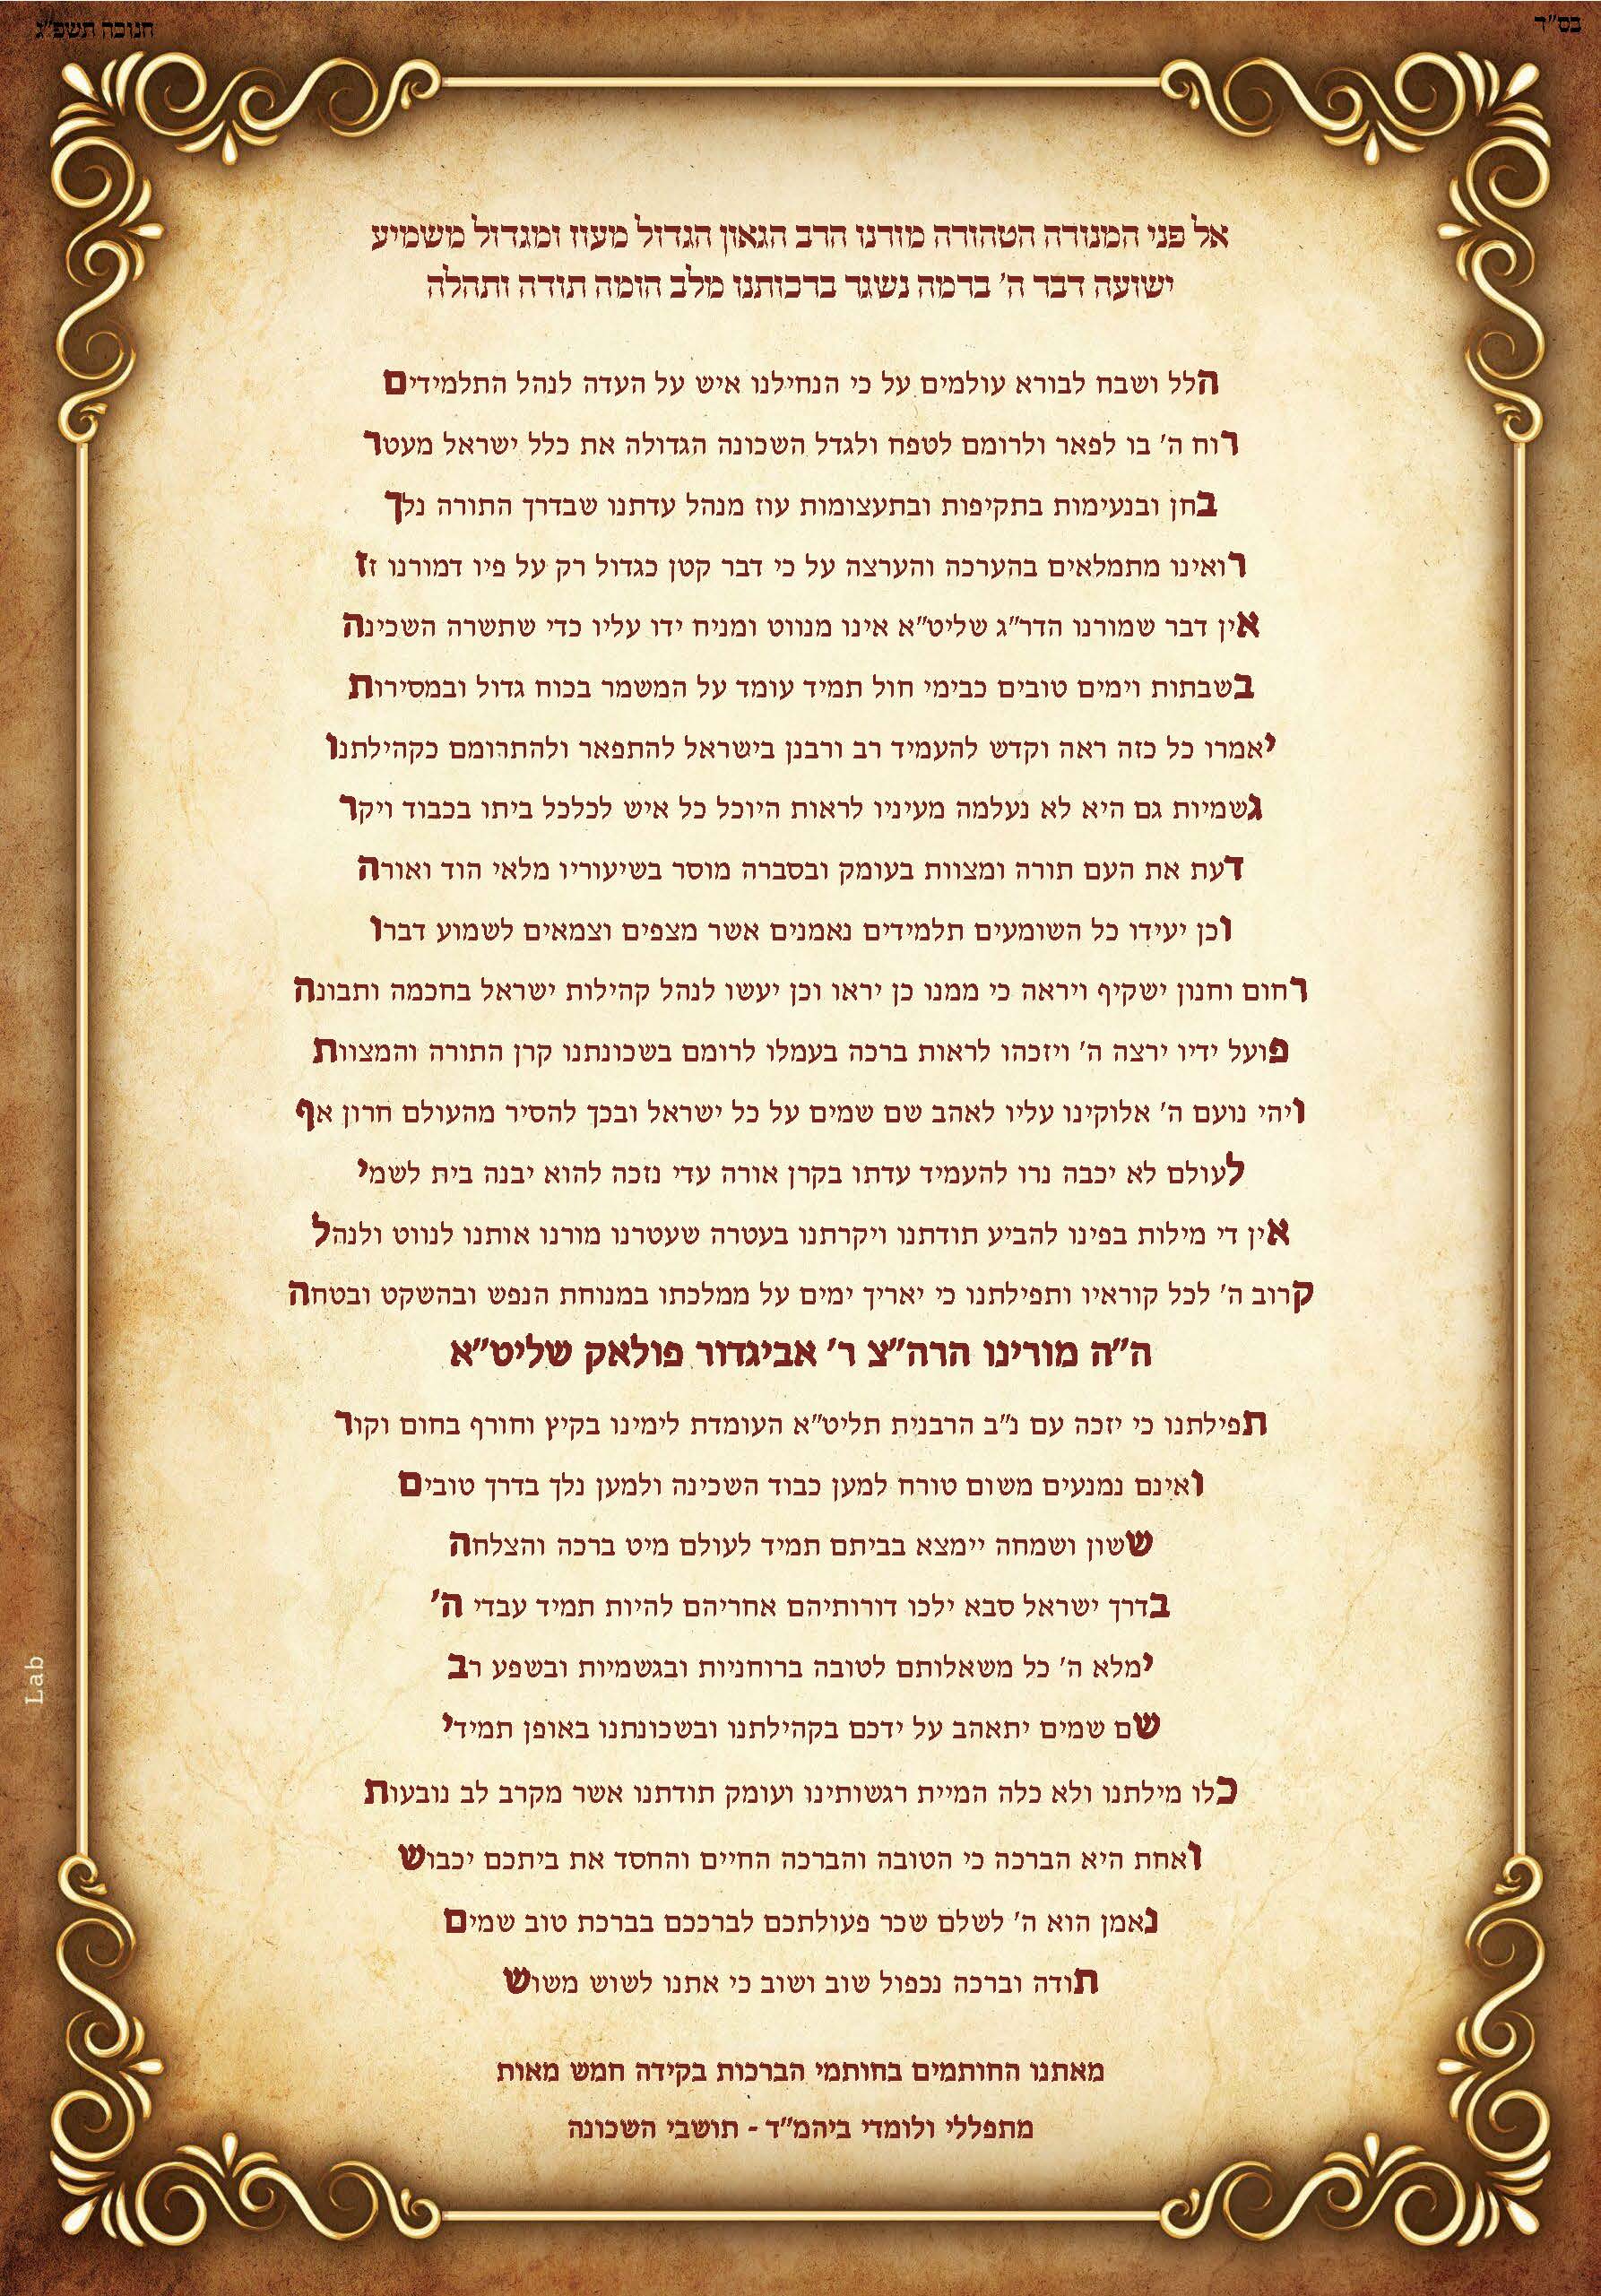 בס"ד
חנוכה תשפ"ג
אל פני המנורה הטהורה מורנו הרב הגאון הגדול מעוז ומגדול משמיע
ישועה דבר ה' ברמה נשגר ברכותנו מלב הומה תודה ותהלה
הלל ושבח לבורא עולמים על כי הנחילנו איש על העדה לנהל התלמידים
רוח ה' בו לפאר ולרומם לטפח ולגדל השכונה הגדולה את כלל ישראל מעטר
בחן ובנעימות בתקיפות ובתעצומות עוז מנהל עדתנו שבדרך התורה נלך
רואינו מתמלאים בהערכה והערצה על כי דבר קטן כגדול רק על פיו דמורנו זז
אין דבר שמורנו הדר"ג שליט"א אינו מנווט ומניח ידו עליו כדי שתשרה השכינה
בשבתות וימים טובים כבימי חול תמיד עומד על המשמר בכוח גדול ובמסירות
יאמרו כל כזה ראה וקדש להעמיד רב ורבנן בישראל להתפאר ולהתרומם כקהילתנו
גשמיות גם היא לא נעלמה מעיניו לראות היוכל כל איש לכלכל ביתו בכבוד ויקר
דעת את העם תורה ומצוות בעומק ובסברה מוסר בשיעוריו מלאי הוד ואורה
וכן יעידו כל השומעים תלמידים נאמנים אשר מצפים וצמאים לשמוע דברו
רחום וחנון ישקיף ויראה כי ממנו כן יראו וכן יעשו לנהל קהילות ישראל בחכמה ותבונה
פועל ידיו ירצה ה' ויזכהו לראות ברכה בעמלו לרומם בשכונתנו קרן התורה והמצוות
ויהי נועם ה' אלוקינו עליו לאהב שם שמים על כל ישראל ובכך להסיר מהעולם חרון אף
לעולם לא יכבה נרו להעמיד עדתו בקרן אורה עדי נזכה להוא יבנה בית לשמי
אין די מילות בפינו להביע תודתנו ויקרתנו בעטרה שעטרנו מורנו אותנו לנווט ולנהל
קרוב ה' לכל קוראיו ותפילתנו כי יאריך ימים על ממלכתו במנוחת הנפש ובהשקט ובטחה
ה"ה מורינו הרה"צ ר' אביגדור פולאק שליט"א
תפילתנו כי יזכה עם נ"ב הרבנית תליט"א העומדת לימינו בקיץ וחורף בחום וקור
ואינם נמנעים משום טורח למען כבוד השכינה ולמען נלך בדרך טובים
ששון ושמחה יימצא בביתם תמיד לעולם מיט ברכה והצלחה
בדרך ישראל סבא ילכו דורותיהם אחריהם להיות תמיד עבדי ה'
ימלא ה' כל משאלותם לטובה ברוחניות ובגשמיות ובשפע רב
שם שמים יתאהב על ידכם בקהילתנו ובשכונתנו באופן תמידי
כלו מילתנו ולא כלה המיית רגשותינו ועומק תודתנו אשר מקרב לב נובעות
ואחת היא הברכה כי הטובה והברכה החיים והחסד את ביתכם יכבוש
נאמן הוא ה' לשלם שכר פעולתכם לברככם בברכת טוב שמים
תודה וברכה נכפול שוב ושוב כי אתנו לשוש משוש
מאתנו החותמים בחותמי הברכות בקידה חמש מאות
מתפללי ולומדי ביהמ"ד - תושבי השכונה
Lab